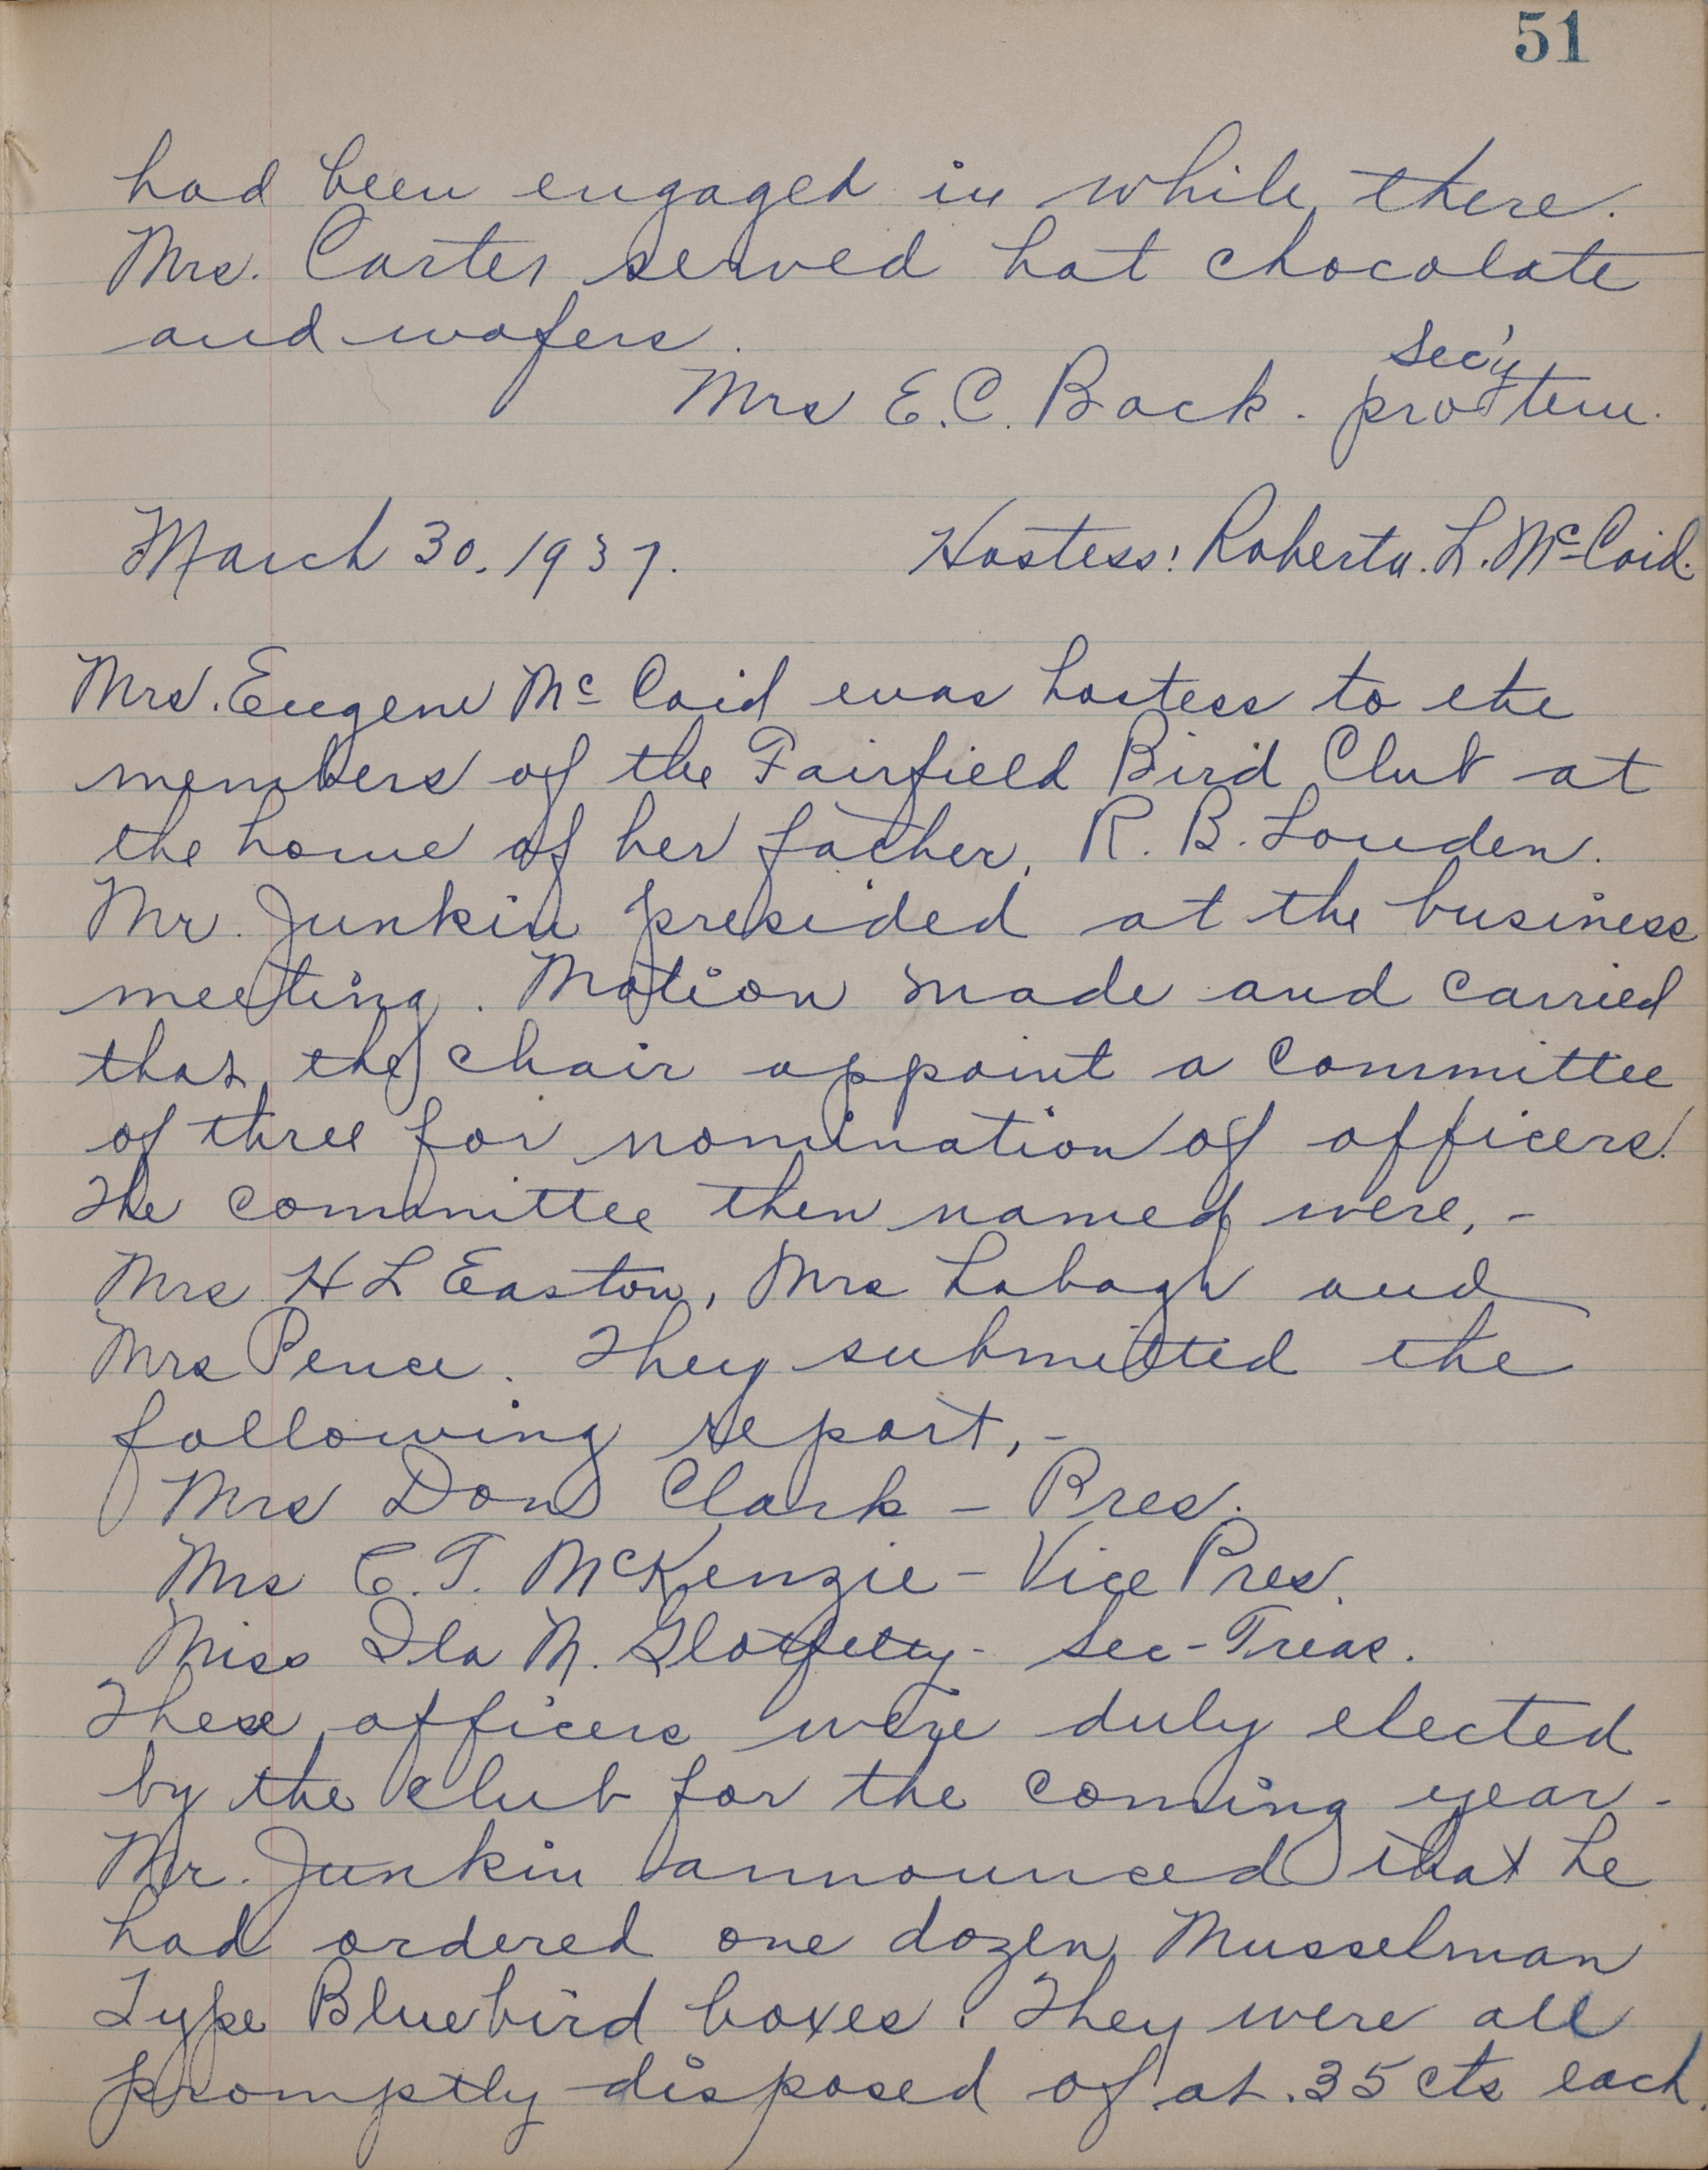 51
had been engaged in while there.
Mrs. Carter served hot chocolate
and wafers.
Sec'y
Mrs E.C. Back. pro tem.
March 30, 1937. Hostess: Roberta. L. McCoid.
Mrs. Eugene McCoid was hostess to the
members of the Fairfield Bird Club at
the home of her father, R. B. Louden.
Mr. Junkin presided at the business
meeting. Motion made and carried
that the chair appoint a committee
of three for nomination of officers.
The committee then named were, -
Mrs H L Easton, Mrs Labagh and
Mrs Pence. They submitted the
following report, -
Mrs Don Clark - Pres.
Mrs C. T. McKenzie - Vice Pres.
Miss Ila M. Glotfelty - Sec - Treas.
These officers were duly elected
by the club for the coming year -
Mr. Junkin announced that he
had ordered one dozen Musselman
Type Bluebird boxes. They were all
promptly disposed of at .35 cts each.